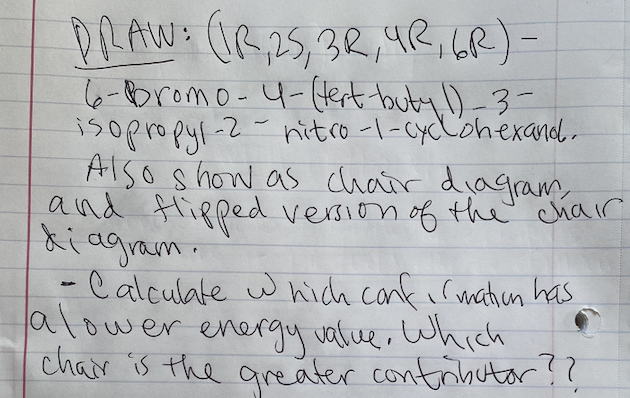 DRAW: (1R,2S,3R,4R,6R)-
6-Bromo-4-(tert-butyl)-3-
isopropyl-2-nitro-1-cyclohexanol.
Also show as chair diagram,
and flipped version of the chair
diagram.
- Calculate which conformation has
a lower energy value. Which
chair is the greater contributor??